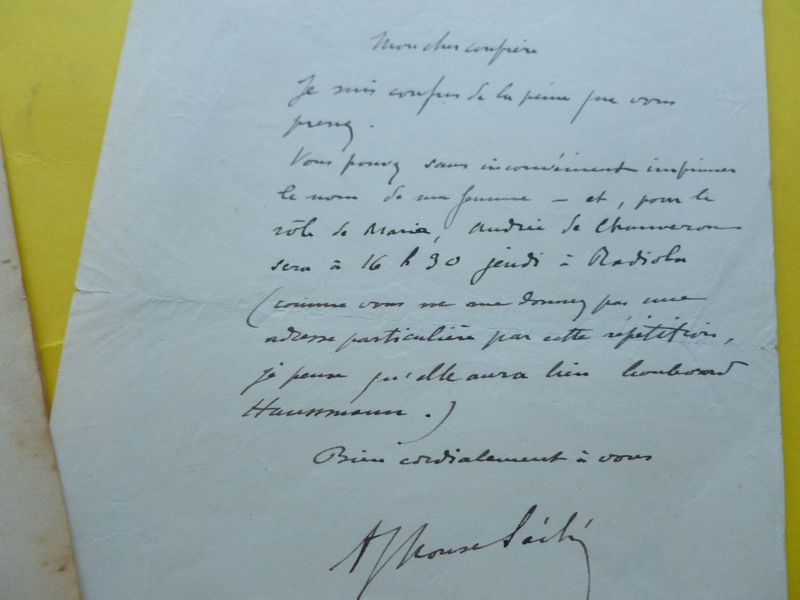 Mon cher confrère
Je suis confus de la peine que vous
prenez.
Vous pouvez sans inconvénient imprimer
le nom de ma femme – et, pour le
rôle de Maria, Andrée de Chauveron
sera à 16 h 30 jeudi à Radiola
(comme vous ne me donnez pas une
adresse particulière par cette répétition,
je pense qu'elle aura lieu boulevard
Haussmann.)
Bien cordialement à vous
Alphonse Séché